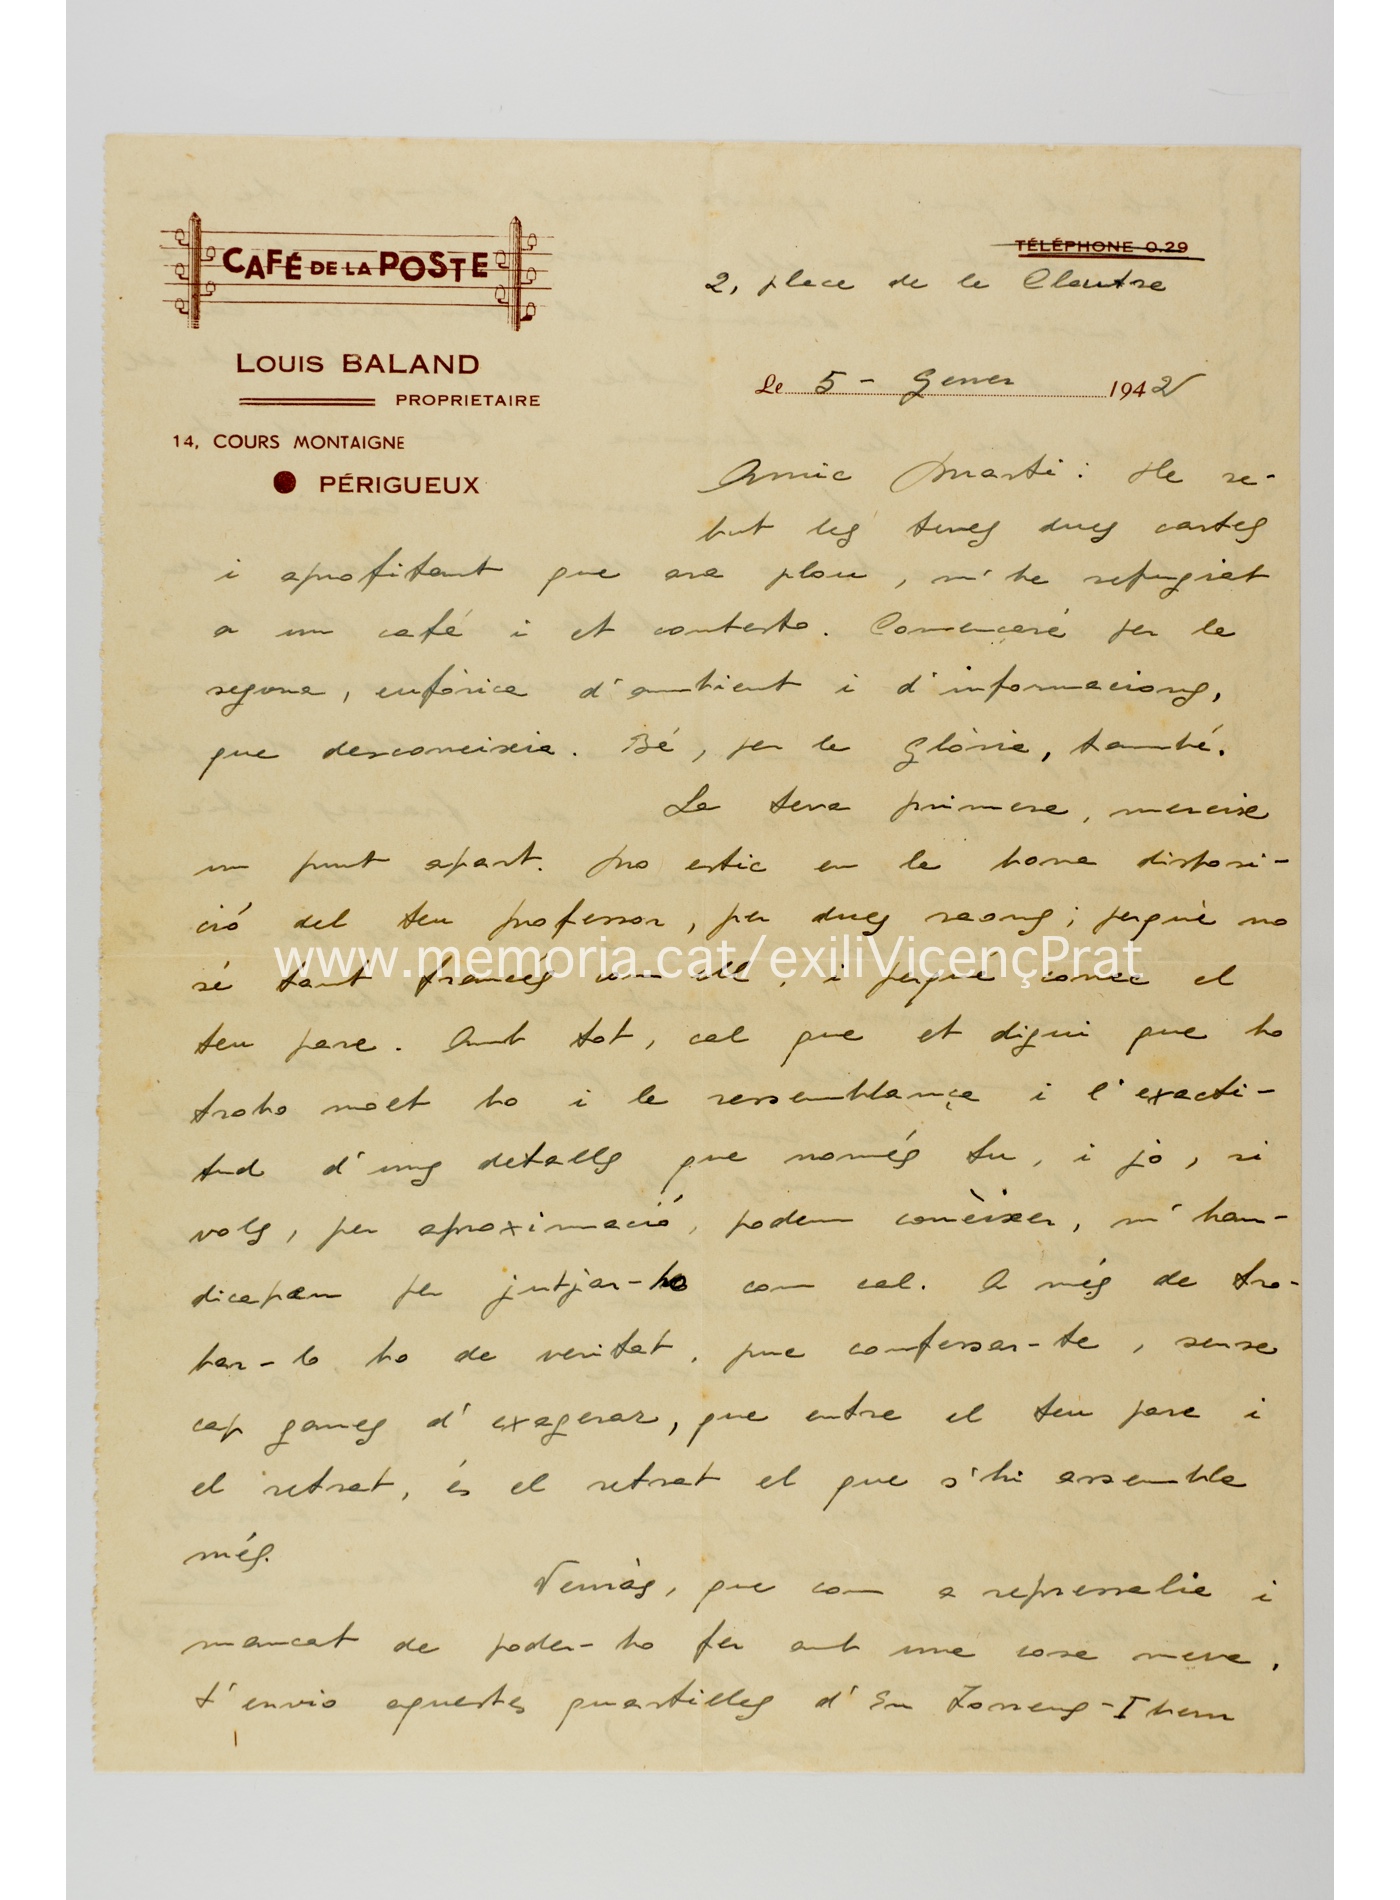 CAFÉ DE LA POSTE
TÉLÉPHONE 0.29
2, place de la Clautre
LOUIS BALAND
PROPRIETAIRE
Le 5 - Gener 1942
14, COURS MONTAIGNE
PÉRIGUEUX
Amic Martí: He re-
but les teves dues cartes
i aprofitant que ara plou, m'he refugiat
a un café i et contesto. Començaré per la
segona, eufòrica d'ambient i d'informacions,
que desconeixia. Bé, per la Glòria, també.
La teva primera, mereix
un punt apart. No estic en la bona disposi-
ció del teu professor, per dues raons; perquè no
sé tant francés com ell, i perquè conec el
teu pare. Amb tot, cal que et digui que ho
trobo molt bo i la ressemblança i l'exacti-
tud d'uns detalls que només tu, i jo, si
vols, per aproximació, podem conèixer, m'han-
dicapen per jutjar-ho com cal. A més de tro-
bar-lo bo de veritat, puc confessar-te, sense
cap ganes d'exagerar, que entre el teu pare i
el retrat, és el retrat el que s'hi assembla
més.
Veuràs, que com a represselia i
mancat de poder-ho fer amb una cosa meva,
t'envio aquestes quartilles d'En Torrens-Ibern
1
www.memoria.cat/exiliVicençPrat